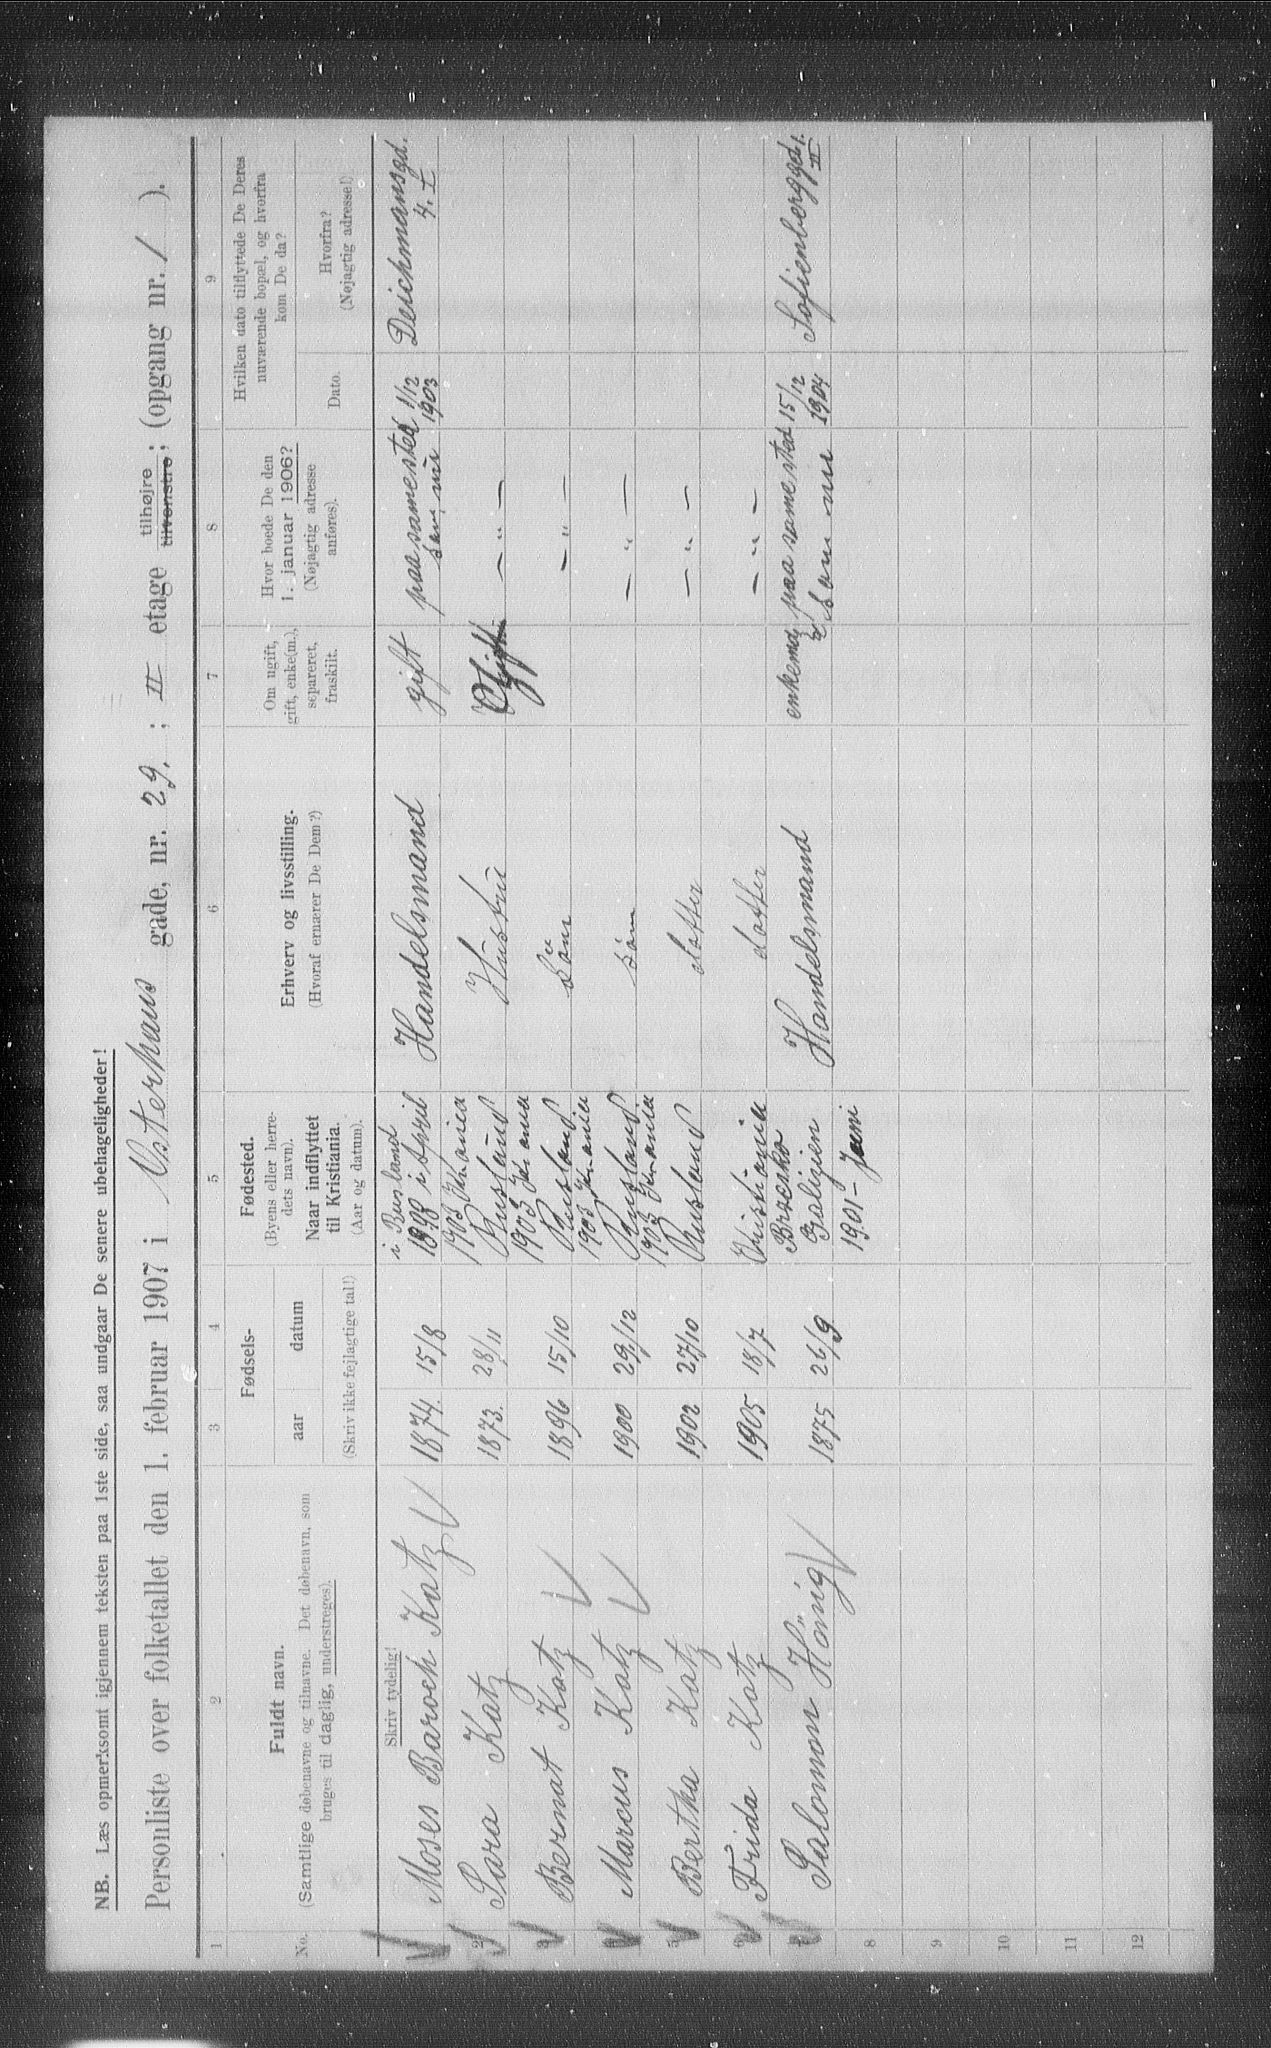 NB. Læs opmerksomt igjennem teksten paa 1ste side, saa undgaar De senere ubehageligheder!
Personliste over folketallet den 1. februar 1907 i Osterhaus gade, nr. 29. ; II etage tilhøjre tilvenstre ; (opgang nr. 1 ).
1 2 3 4 5 6 7 8 9
No.
Fuldt navn.
(Samtlige døbenavne og tilnavne. Det døbenavn, som
bruges til daglig, understreges).
Fødsels-
aar datum
(Skriv ikke fejlagtige tal!)
Fødested.
(Byens eller herre-
dets navn).
Naar indflyttet
til Kristiania.
(Aar og datum).
Erhverv og livsstilling.
(Hvoraf ernærer De Dem?)
Om ugift,
gift, enke(m.),
separeret,
fraskilt.
Hvor boede De den
1. januar 1906?
(Nøjagtig adresse
anføres).
Hvilken dato tilflyttede De Deres
nuværende bopæl, og hvorfra
kom De da?
Dato.
Hvorfra?
(Nøjagtig adresse!)
Skriv tydelig!
1 Moses Baroch Katz 1874. 15/8 i Rusland 1900 i April Handelsmand gift paa samested som nu 1/12 1903 Deichmansgd. 4. I
2 Sara Katz 1873. 28/11 1903 Kr.ania Rusland Hustru Gift — " —
3 Bermat Katz 1896 15/10 1903 Kr.ania Rusland Sön — " —
4 Marcus Katz 1900 29/12 1903 Kr.ania Rusland sön — " —
5 Bertha Katz 1902 27/10 1903 Kr.ania Rusland datter — " —
6 Frida Katz 1905 18/7 Kristiania datter — " —
7 Salomon Hönig 1875 26/9 Brzesko Galizien 1901 - Juni Handelsmand enkemd. paa samested som nu 15/12 1904 Sofienberggd. 1. II
8
9
10
11
12